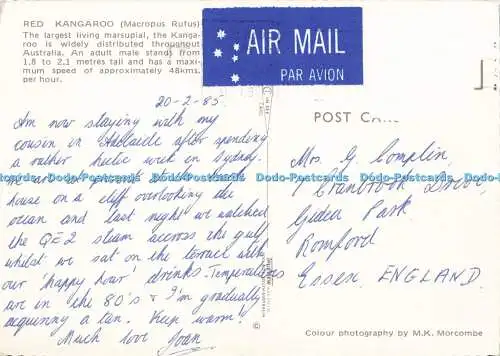 RED KANGAROO (Macropus Rufus)
The largest living marsupial, the Kanga-
roo is widely distributed throughout
Australia. An adult male stands from
1.8 to 2.1 metres tall and has a maxi-
mum speed of approximately 48kms.
per hour.
AIR MAIL
PAR AVION
20-2-85
Am now staying with my
cousin in Adelaide after spending
a rather hectic week in Sydney.
We are at present in a beach
house on a cliff overlooking the
ocean and last night we watched
the QE2 steam across the gulf
whilst we sat on the terrace with
our 'happy hour' drinks. Temperatures
are in the 80's & I'm gradually
acquiring a tan. Keep warm!
Much love Joan
POST CARD
Mrs. G. Complin,
7 Cranbrook Drive,
Gidea Park
Romford
Essex. ENGLAND.
Colour photography by M.K. Morcombe
Dodo-Postcards Dodo-Postcards Dodo-Postcards Dodo-Postcards